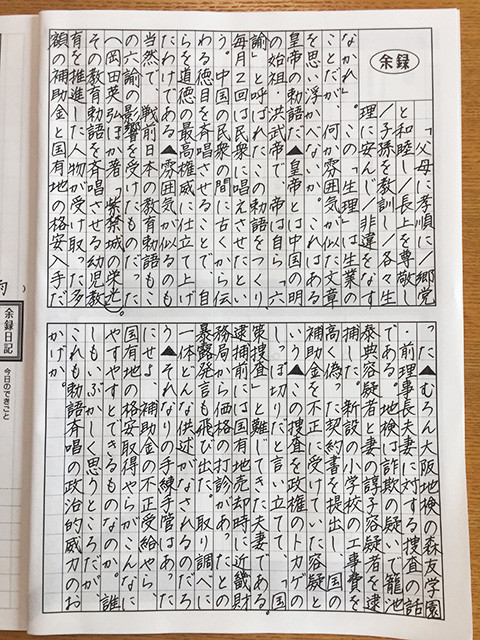 余録
「父母に孝順に/郷党
と和睦し/長上を尊敬し
/子孫を教訓し/各々生
理に安んじ/非違をなす
なかれ」。この「生理」は生業の
ことだが、何か雰囲気が似た文章
を思い浮かべないか。これはある
皇帝の勅語だ▲皇帝とは中国の明
の始祖・洪武帝で、帝は自ら「六
諭」と呼ばれたこの勅語をつくり、
毎月2回は民衆に唱えさせたとい
う。中国の民衆の間に古くから伝
わる徳目を斉唱させることで、自
らを道徳の最高権威に仕立て上げ
たわけである▲雰囲気が似るのも
当然で、戦前日本の教育勅語もこ
の六諭の影響を受けたものだった
(岡田英弘ほか著「紫禁城の栄光」)。
その教育勅語を斉唱させる幼児教
育を推進した人物が受け取った多
額の補助金と国有地の格安入手だ
った▲むろん大阪地検の森友学園
・前理事長夫妻に対する捜査の話
である。地検は詐欺の疑いで籠池
泰典容疑者と妻の諄子容疑者を逮
捕した。新設の小学校の工事費を
高く偽った契約書を提出し、国の
補助金を不正に受けていた容疑と
いう▲この捜査を政権のトカゲの
しっぽ切りだと言い立てて、「国
策捜査」と難じてきた夫妻である。
逮捕前には国有地売却時に近畿財
務局から価格の打診があったとの
暴露発言も飛び出た。取り調べに
一体どんな供述がなされるのだろ
う▲それなりの手練手管はあった
にせよ、補助金の不正受給やら
国有地の格安取得やらがこんなに
やすやすとできるものなのか。誰
しもいぶかしく思うところだが、
これも勅語斉唱の政治的威力のお
かげか。
余録日記
今日のできごと